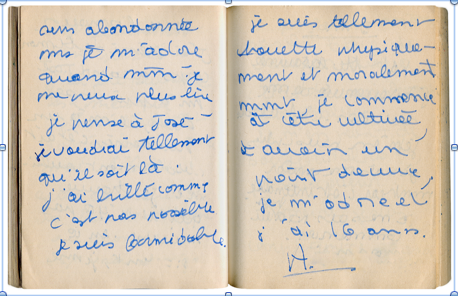 suis abandonnée
ms je m'adore
quand mm - je
me veux plus lire
je pense à José -
je voudrai tellement
qu'il soit là.
j'ai brillé comme
c'est pas possible
je suis formidable.
je suis tellement
chouette physique-
ment et moralement
mmt, je commence
à être cultivée,
à avoir un
point de vue,
je m'adore et
j'ai 16 ans.